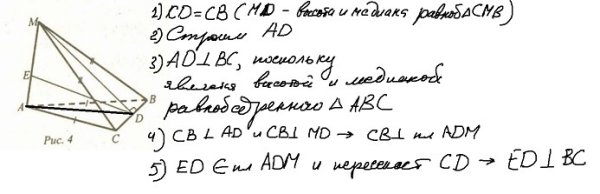 1) CD=CB (MD - высота и медиана равноб△CMB)
2) Строим AD
3) AD⊥BC, поскольку
является высотой и медианой
равнобедренного △ABC
4) CB⊥AD и CB⊥MD → CB⊥ пл ADM
5) ED∈пл ADM и пересекает CD → ED⊥BC
M
E
A
B
D
C
Рис. 4